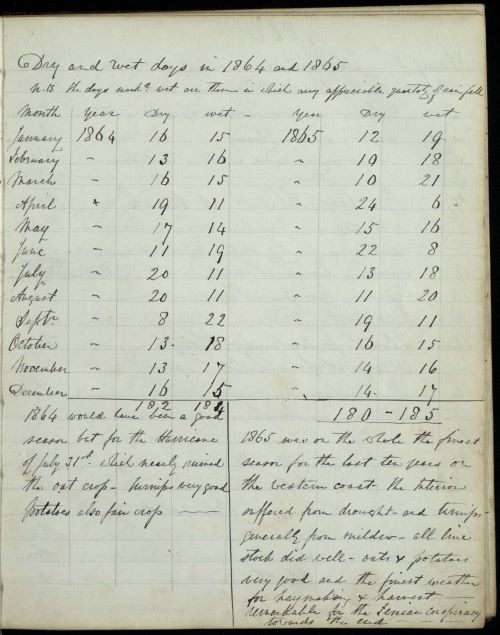 Dry and wet days in 1864 and 1865
N.B. the days mark.d wet are those in which any appreciable quantity of rainfall
Month Year Dry wet - Year Dry wet
January 1864 16 15 1865 12 19
February " 13 16 " 10 18
March " 16 15 " 10 21
April " 19 11 " 24 6
May " 17 14 " 15 16
June " 11 19 " 22 8
July " 20 11 " 13 18
August " 20 11 " 11 20
Septr " 8 22 " 19 11
October " 13 18 " 16 15
November " 13 17 " 14 16
December " 16 15 " 14 17
182 184 180 - 185
1864 would have been a good
season but for the Hurricane
of July 31st which nearly ruined
the oat crop - turnips very good
potatoes also fair crop
1865 was on the whole the finest
season for the last ten years on
the western coast the Interior
suffered from drought - and turnips
generally from mildew - all live
stock did well - oats & potatoes
very good and the finest weather
for haymaking & harvest
remarkable for the Fenian Conspiracy
towards the end